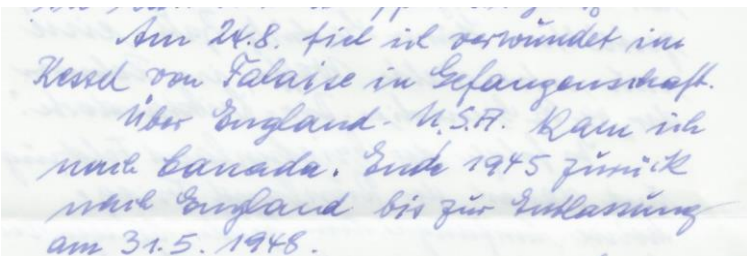 Am 24.8. fiel ich verwundet im
Kessel von Falaise in Gefangenschaft.
Über England - U.S.A. kam ich
nach Canada. Ende 1945 zurück
nach England bis zur Entlassung
am 31.5.1948.